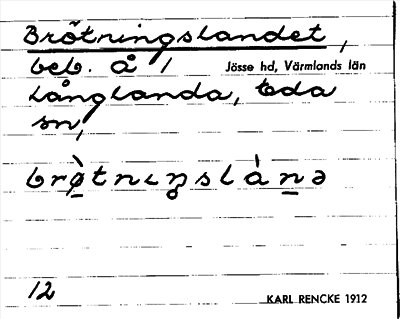 Brötningslandet,
beb. å / Jösse hd, Värmlands län
Långlanda, Eda
sn,
brø̀tnɩŋslànə
12 KARL RENCKE 1912